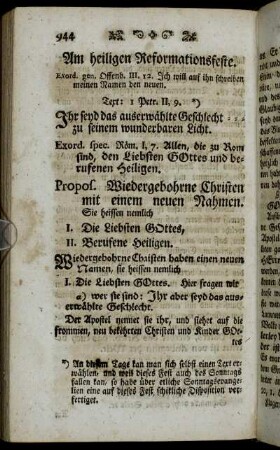 944
Am heiligen Reformationsfeste.
Exord. gen. Offenb. III. 12. Ich will auf ihn schreiben
meinen Namen den neuen.
Text: 1 Petr. II, 9. *)
Ihr seyd das auserwählte Geschlecht - - -
zu seinem wunderbaren Licht.
Exord. spec. Röm. I, 7. Allen, die zu Rom
sind, den Liebsten GOttes und be-
rufenen Heiligen.
Propos. Wiedergebohrne Christen
mit einem neuen Nahmen.
Sie heissen nemlich
I. Die Liebsten GOttes,
II. Berufene Heiligen.
Wiedergebohrne Christen haben einen neuen
Namen, sie heissen nemlich
I. Die Liebsten GOttes. Hier fragen wir
a) wer sie sind: Ihr aber seyd das aus-
erwählte Geschlecht.
Der Apostel nennet sie ihr, und siehet auf die
frommen, neu bekehrten Christen und Kinder GOt-
tes
*) An diesem Tage kan man sich selbst einen Text er-
wählen, und weil dieses Fest auch des Sonntags
fallen kan, so habe über etliche Sonntagsevange-
lien eine auf dieses Fest schickliche Disposition ver-
fertiget.